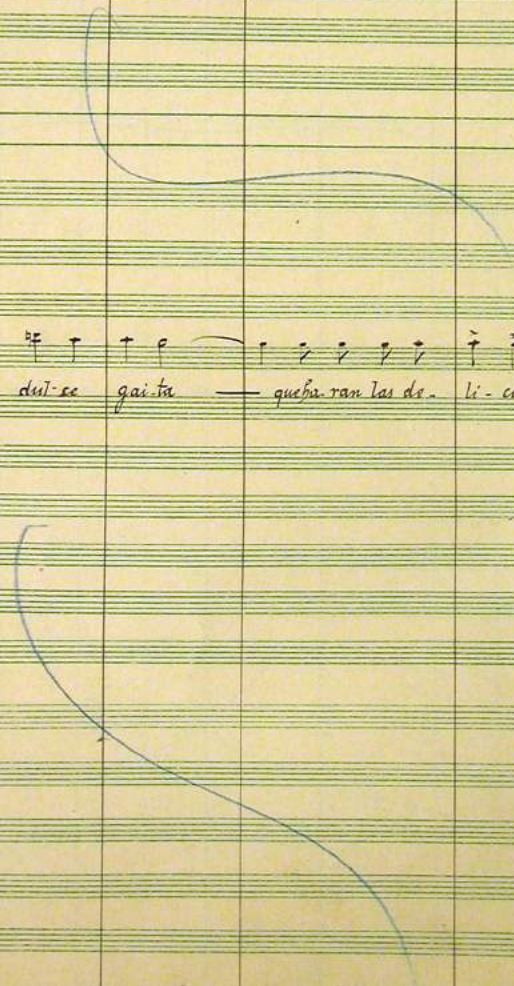 dul-se gai-ta — que ha-ran las de- li-